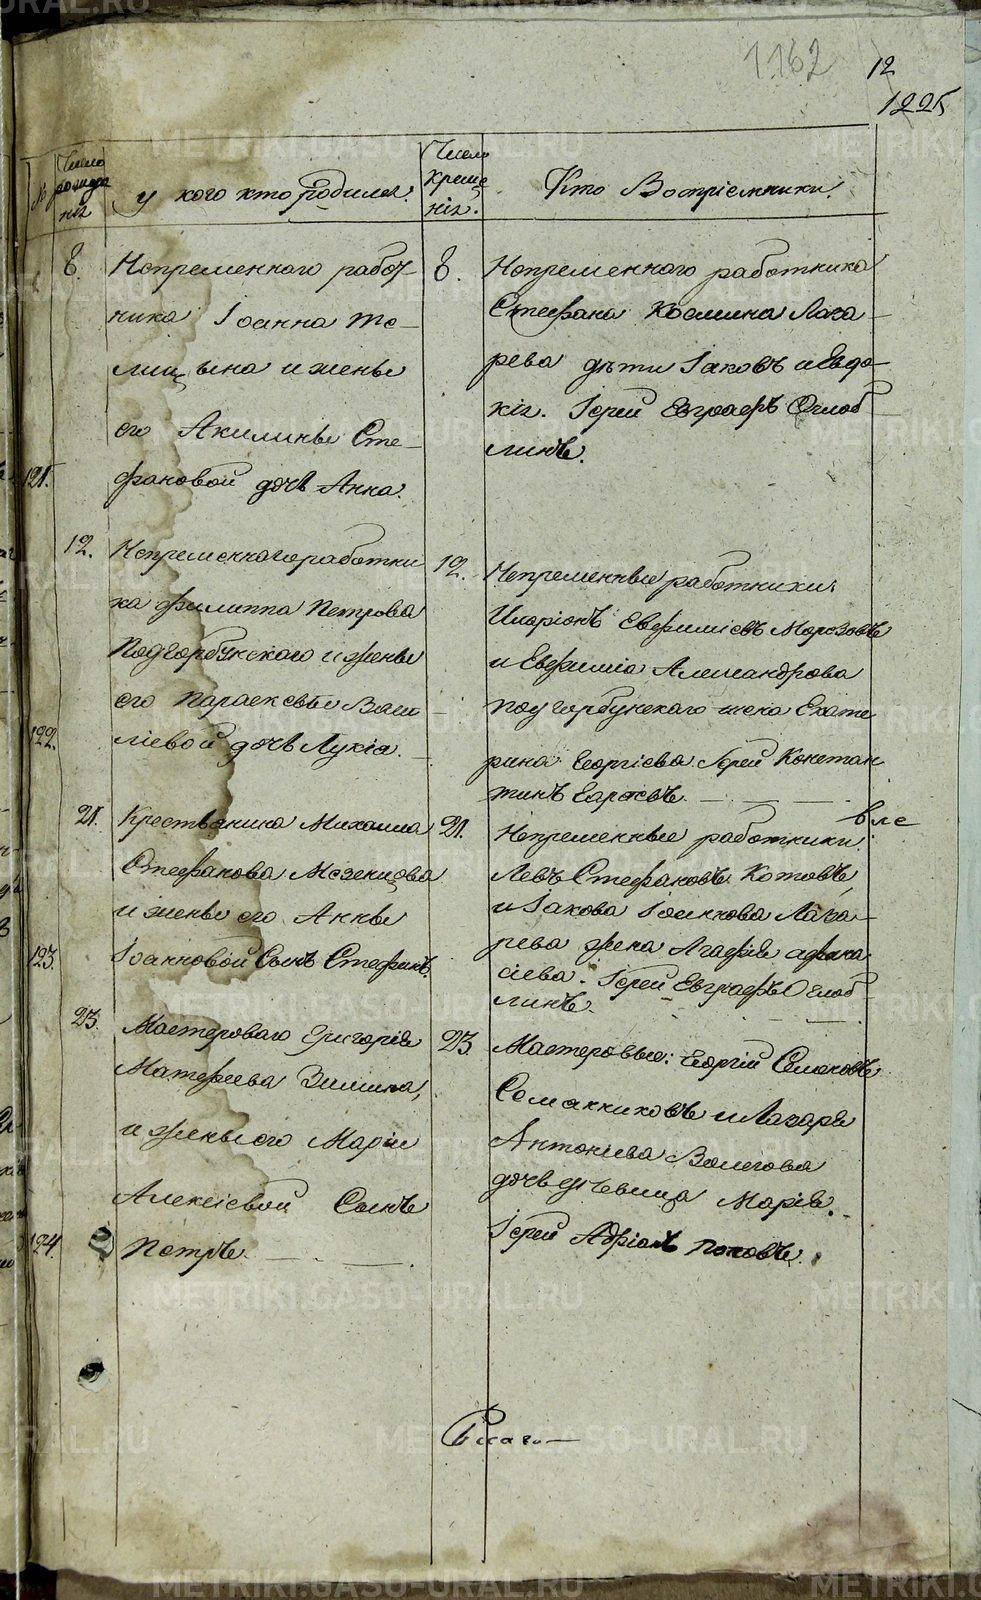 1162
12
1225
№
Число рожденія
У кого кто родился.
Число крещенія.
Кто Воспріемники.
8.
Непременнаго работ-
ника Іоанна Те-
лицына и жены
его Акилины Сте-
фановой дочь Анна.
121.
8.
Непременнаго работника
Стефана Козмина Лаза-
рева дѣти Іаковъ и Евдо-
кія. Іерей Евграфъ Оглоб-
линъ.
12.
Непременнаго работни
ка Филиппа Петрова
Подгорбунскаго и жены
его Параскевы Васи-
ліевой дочь Лукія.
122.
12.
Непременные работники:
Иларіонъ Евфиміевъ Морозовъ
и Евфимія Александрова
Подгорбунскаго жена Екате
рина Георгіева. Іерей Констан
тинъ
21.
Крестьянина Михаила
Стефанова Мезенцова
и жены его Анны
Іоанновой Сынъ Стефанъ.
123.
21.
Непременные работники:
Левъ Стефановъ Котовъ,
и Іакова Іоаннова Лаза-
рева жена Агафія Афана
сіева. Іерей Евграфъ Оглоб-
линъ.
23.
Мастероваго Григорія
Матфеева Зимина,
и жены его Маріи
Алексіевой Сынъ
Петръ.
124.
23.
Мастеровые: Георгій Симоновъ
Соманниковъ и Лазаря
Антоніева Волегова
дочь дѣвица Марія.
Іерей Адріанъ Поповъ.
METRIKI.GASO-URAL.RU